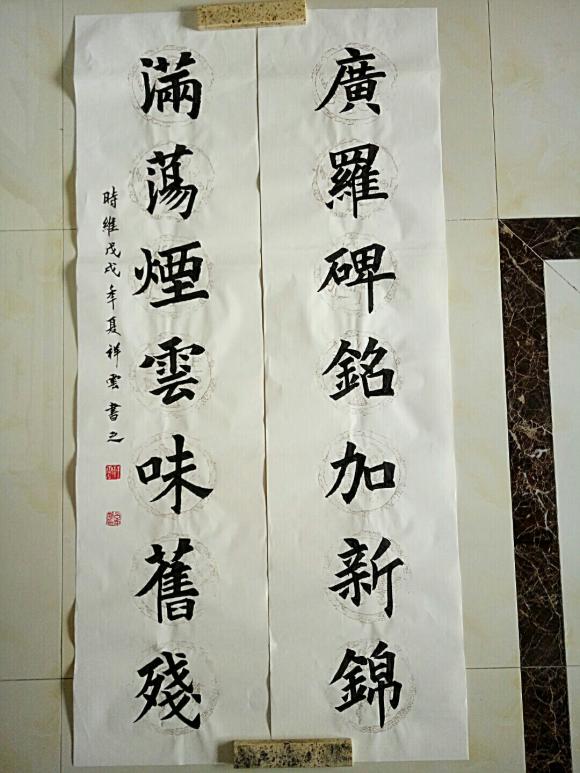 廣羅碑銘加新錦
滿蕩煙雲味舊殘
時維戊戌年夏祥雲書之